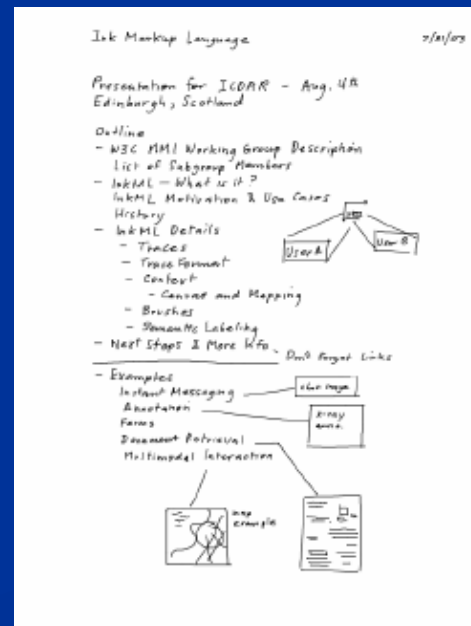 Ink Markup Language
7/21/03
Presentation for ICDAR - Aug. 4th
Edinburgh, Scotland
Outline
- W3C MMI Working Group Description
List of Subgroup Members
- InkML - What is it?
InkML Motivation & Use Cases
History
- InkML Details
- Traces
- Trace Format
- Context
- Canvas and Mapping
- Brushes
- Semantic Labeling
- Next Steps & More Info
Don't Forget Links
User A
User B
- Examples
Instant Messaging
Annotation
X-ray
Forms
Document Retrieval
Multimodal Interaction
map
example